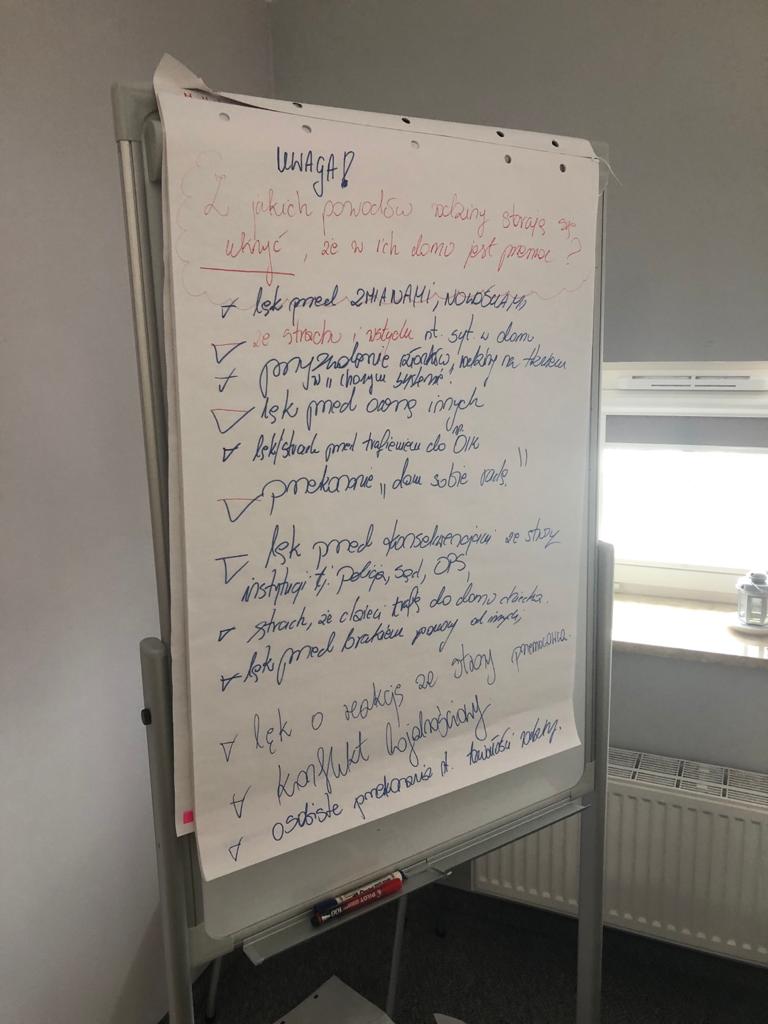 UWAGA!
Z jakich powodów rodziny starają się
ukryć, że w ich domu jest przemoc?
lęk przed ZMIANAMI, NOWOŚCIAMI
ze strachu i wstydu nt. syt. w domu
przyzwolenie członków rodziny na tkwienie
w "chorym systemie".
lęk przed oceną innych
lęk/strach przed trafieniem do np. OIK
przekonanie "dam sobie radę"
lęk przed konsekwencjami ze strony
instytucji tj. policja, sąd, OPS,
strach, że dzieci trafią do domu dziecka.
lęk przed brakiem pomocy od innych,
lęk o reakcję ze strony przemocowca.
konflikt lojalnościowy
osobiste przekonania nt. trwałości rodziny.
PILOT